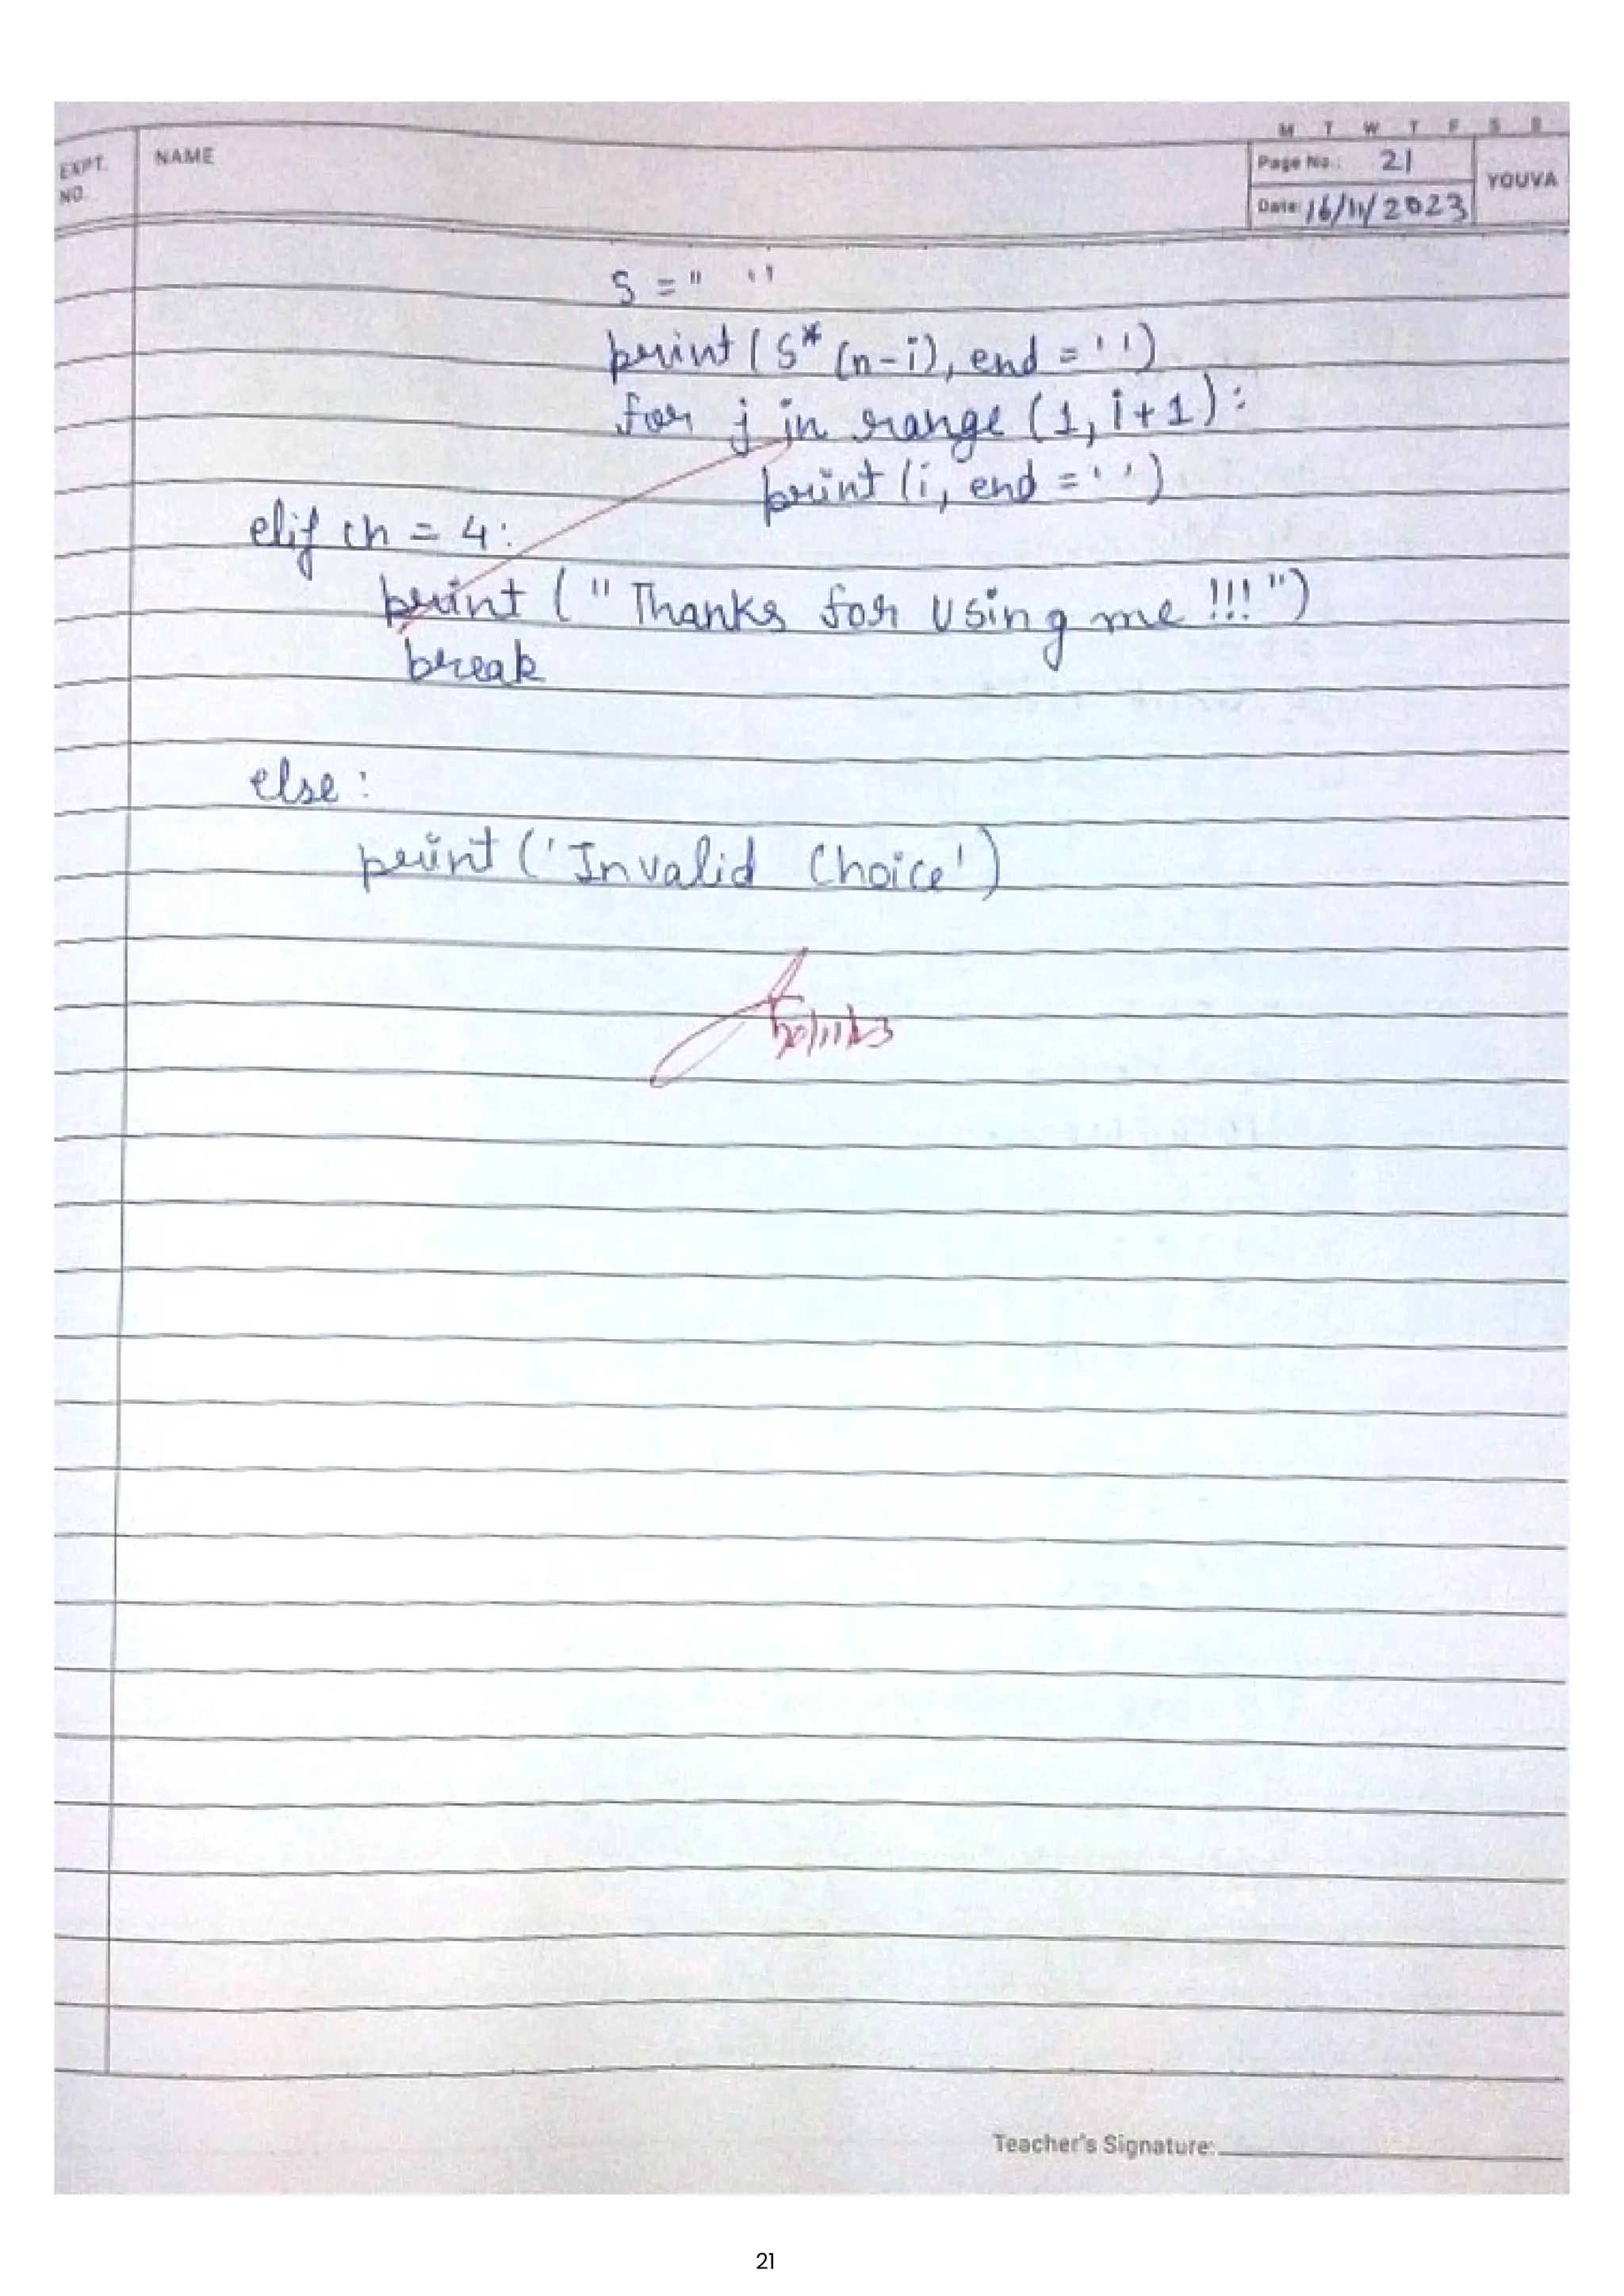 M T W T F S S
EXPT. NO.
NAME
Page No.: 21
Date: 16/11/2023
YOUVA
S = " "
print (S* (n-i), end = ' ')
for j in range (1, i+1):
print (i, end = ' ')
elif ch = 4:
print (" Thanks for Using me !!! ")
break
else :
print ('Invalid Choice')
20/11/23
Teacher's Signature:
21